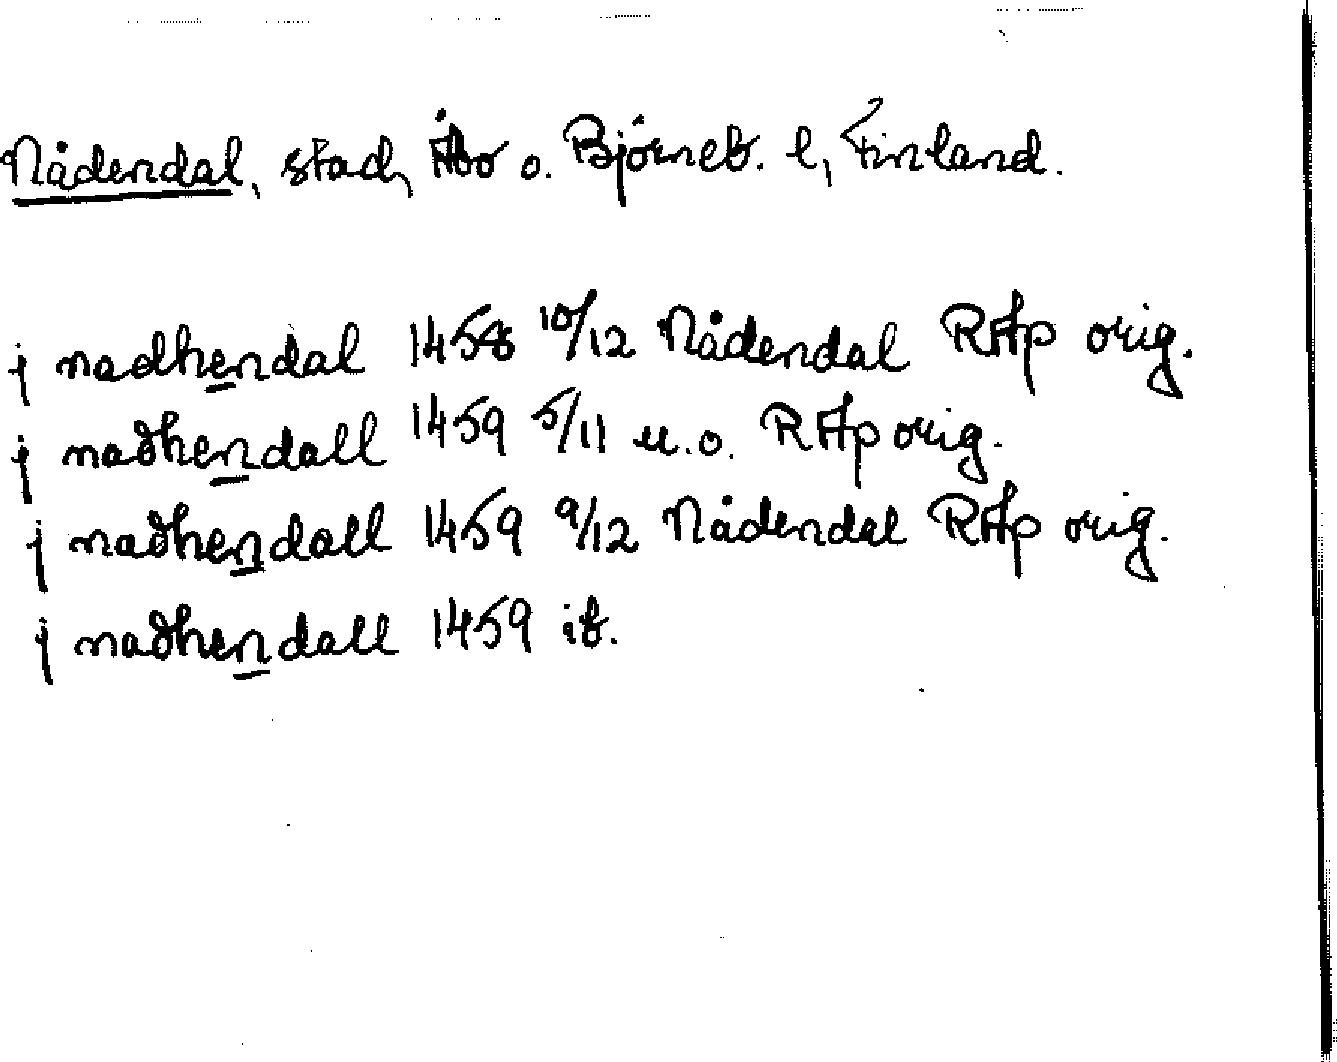 Nådendal, stad, Åbo o. Björneb. l, Finland.
j nadhendal 1458 10/12 Nådendal RAp orig.
j nadhendall 1459 5/11 u.o. RAp orig.
j nadhendall 1459 9/12 Nådendal RAp orig.
j nadhendall 1459 ib.